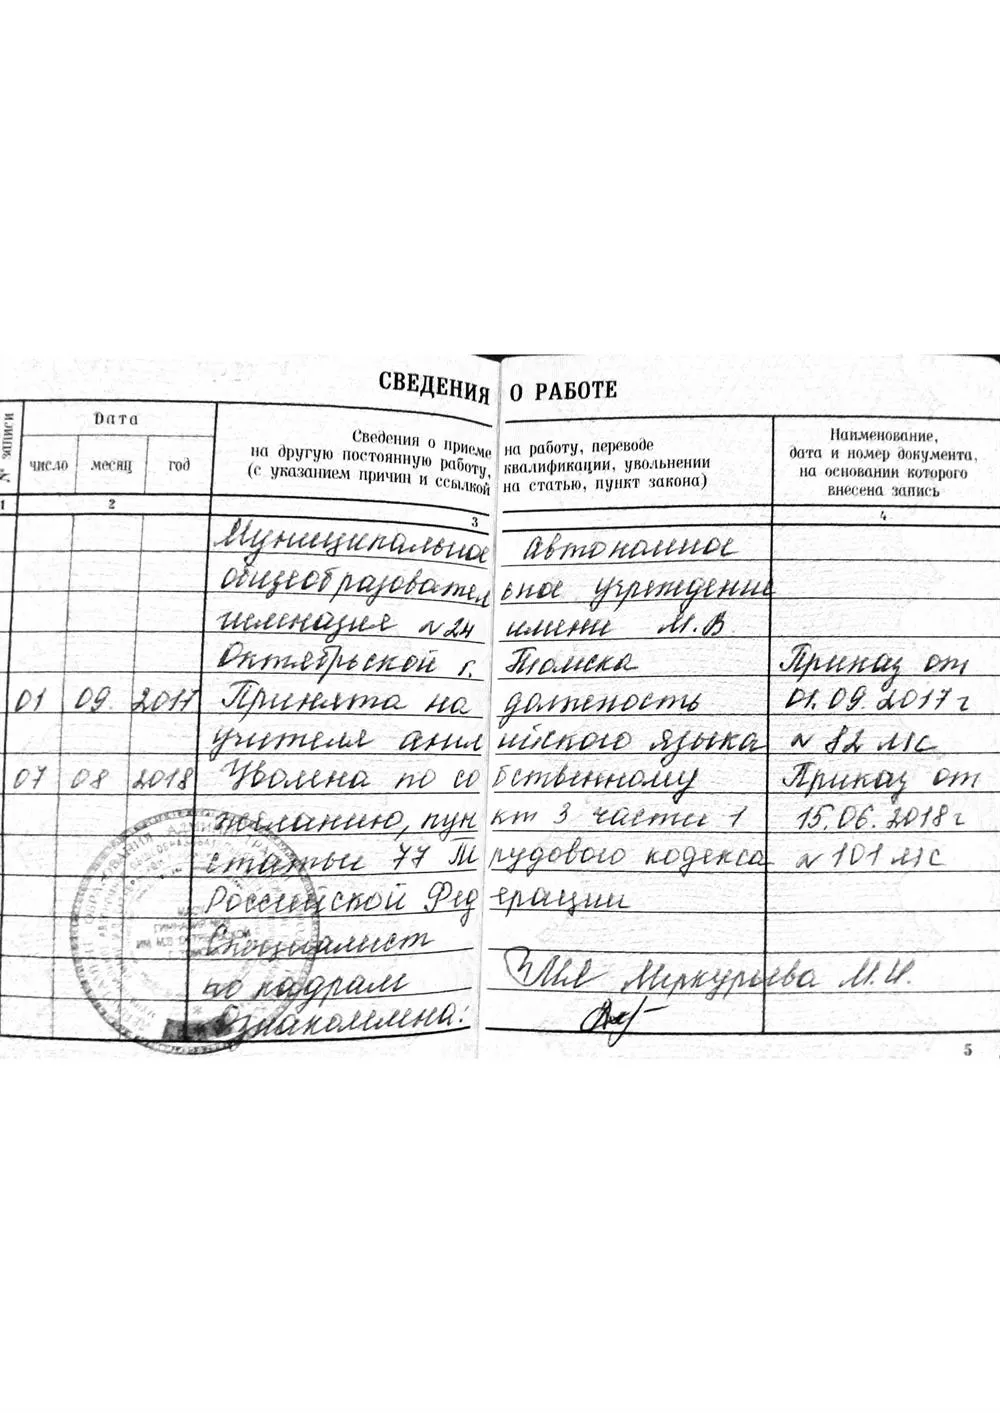 СВЕДЕНИЯ О РАБОТЕ
№ записи
Дата
число месяц год
Сведения о приеме на работу, переводе
на другую постоянную работу, квалификации, увольнении
(с указанием причин и ссылкой на статью, пункт закона)
Наименование,
дата и номер документа,
на основании которого
внесена запись
1 2 3 4
Муниципальное автономное
общеобразовательное учреждение
гимназия №24 имени М.В
Октябрьской г. Томска Приказ от
01 09. 2017 Принята на должность 01.09.2017г
учителя английского языка № 82 л/с
07 08 2018 Уволена по собственному Приказ от
желанию, пункт 3 части 1 15.06.2018г
статьи 77 Трудового кодекса № 101 л/с
Российской Федерации
Специалист
по кадрам Меркурьева М.И.
Ознакомлена:
5